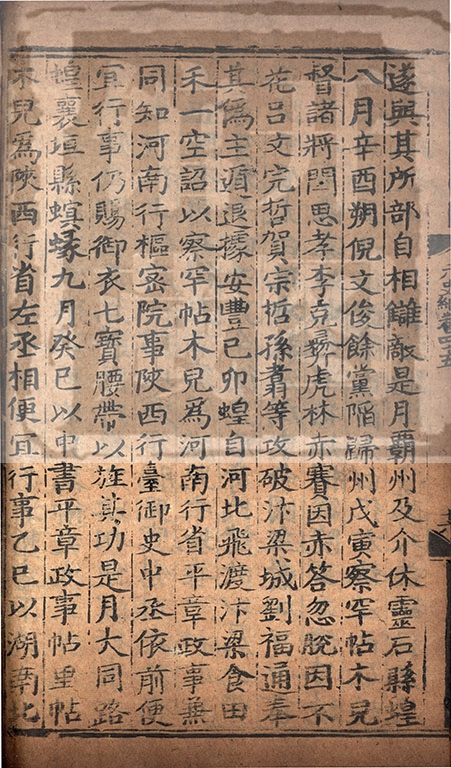 遂與其所部自相讎敵是月霸州及介休靈石縣蝗
八月辛酉朔倪文俊餘黨陷歸州戊寅察罕帖木兒
督諸將閻思孝李克彞虎林赤賽因赤答忽脫因不
花呂文完哲賀宗哲孫翥等攻破汴梁城劉福通奉
其僞主遁退據安豐己卯蝗自河北飛渡汴梁食田
禾一空詔以察罕帖木兒爲河南行省平章政事兼
同知河南行樞密院事陝西行臺御史中丞依前便
宜行事仍賜御衣七寶腰帶以旌其功是月大同路
蝗襄垣縣螟蝝九月癸巳以中書平章政事帖里帖
木兒爲陝西行省左丞相便宜行事乙巳以湖南北